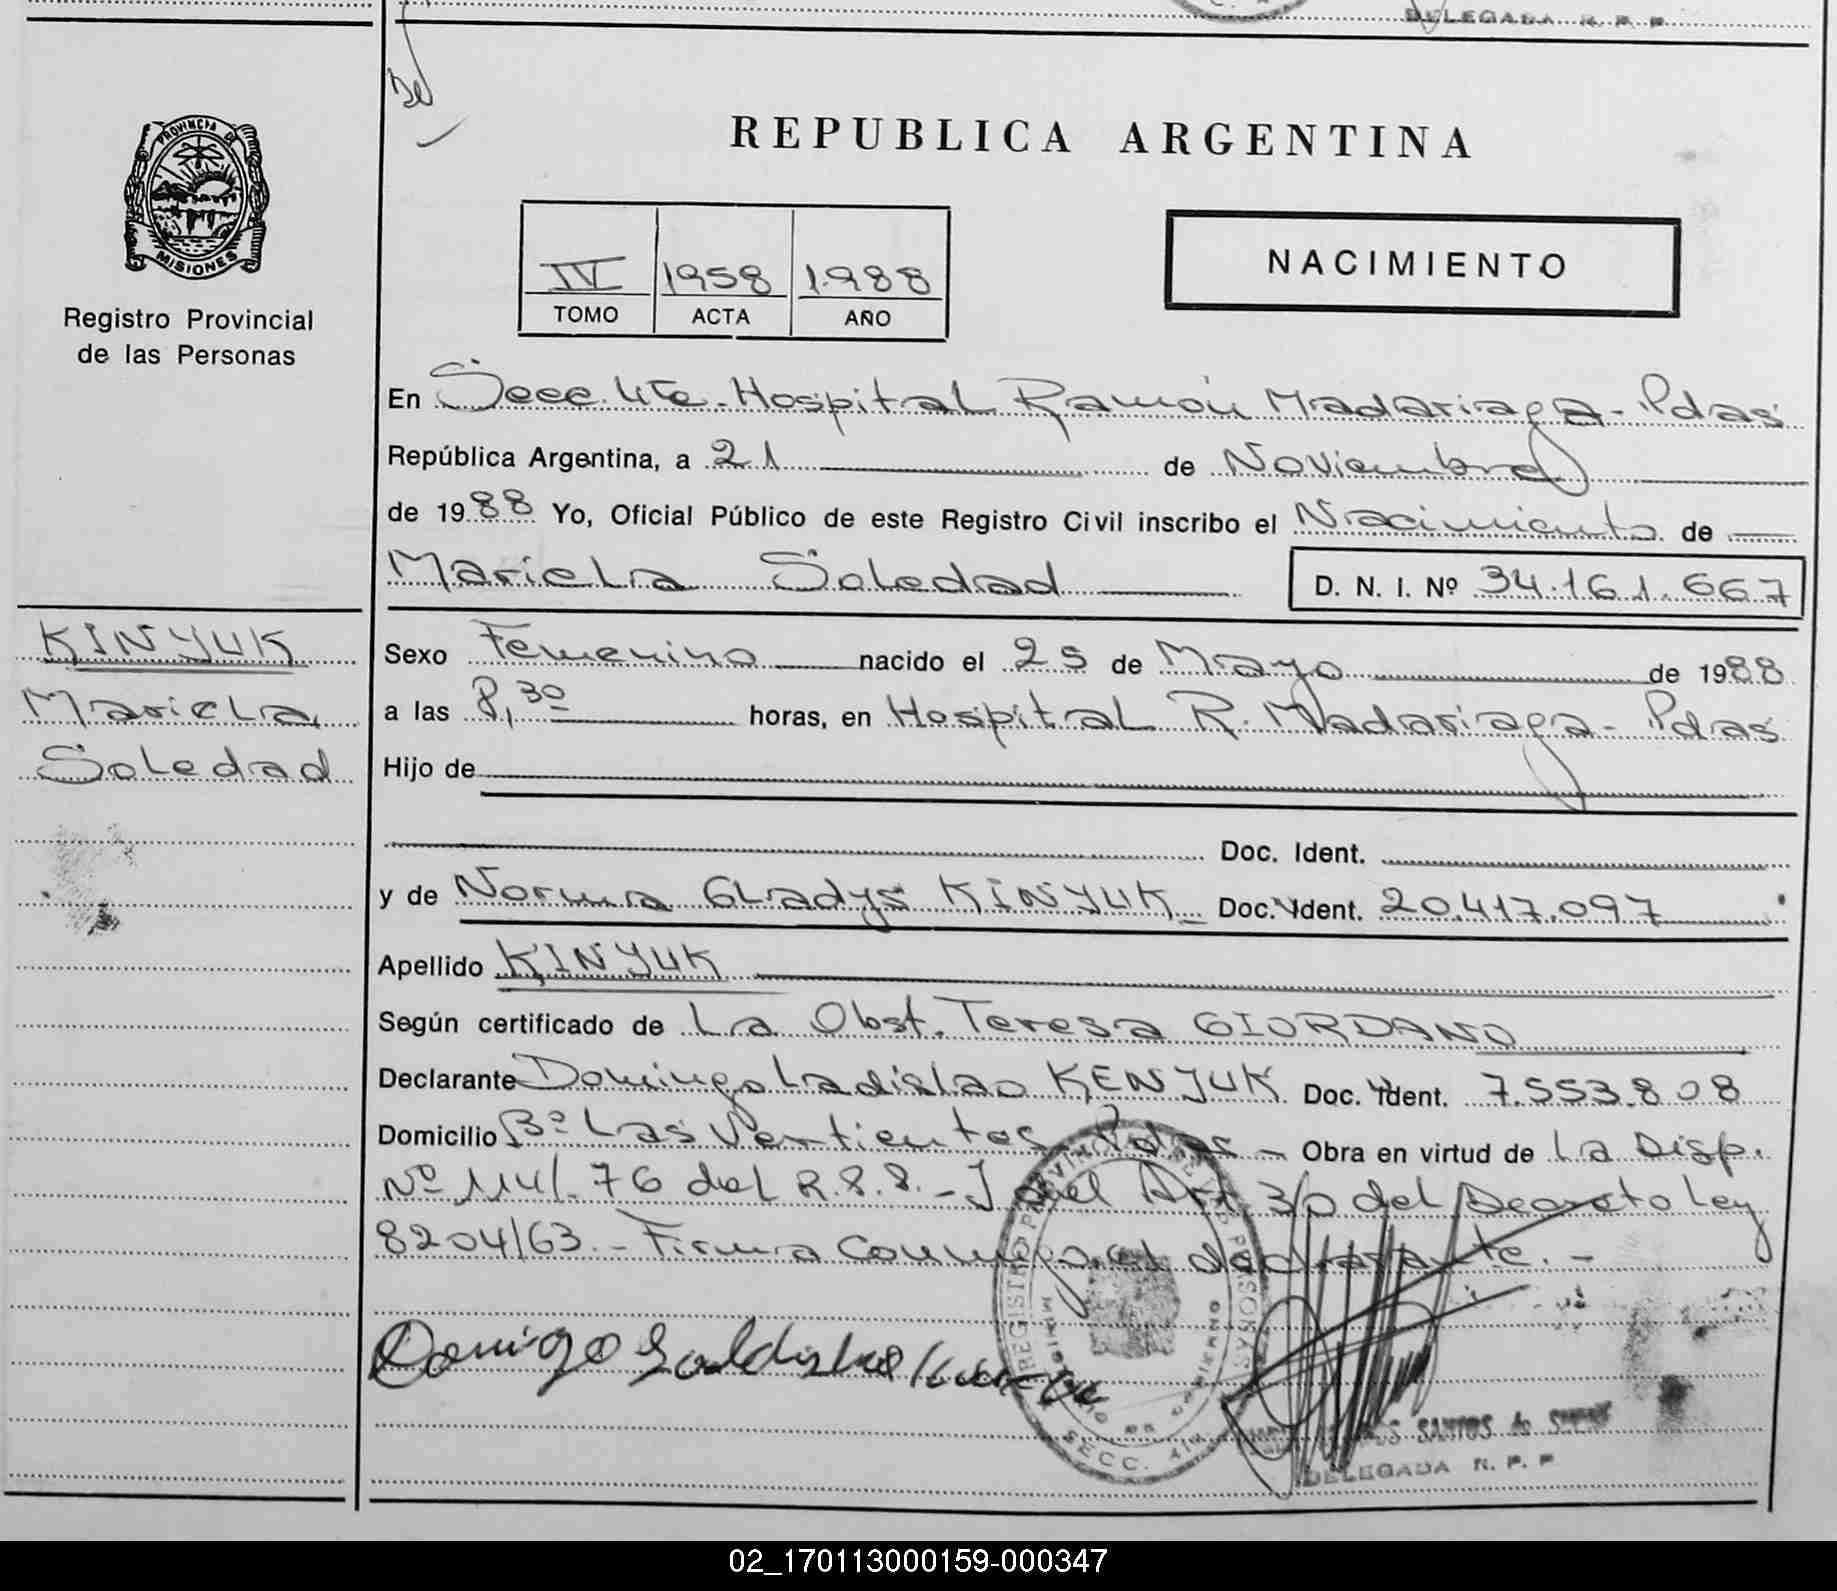 DELEGADA R. P. P.
PROVINCIA DE
MISIONES
Registro Provincial
de las Personas
REPUBLICA ARGENTINA
IV 1958 1.988
TOMO ACTA AÑO
NACIMIENTO
En Secc. 4ta. Hospital Ramón Madariaga - Pdas
República Argentina, a 21 de Noviembre
de 1988 Yo, Oficial Público de este Registro Civil inscribo el Nacimiento de
Mariela Soledad D. N. I. Nº 34.161.667
KINYUK
Mariela
Soledad
Sexo Femenino nacido el 25 de Mayo de 1988
a las 8,30 horas, en Hospital R. Madariaga - Pdas
Hijo de
Doc. Ident.
y de Norma Gladys KINYUK Doc. Ident. 20.417.097
Apellido KINYUK
Según certificado de La Obst. Teresa GIORDANO
Declarante Domingo Ladislao KENYUK Doc. Ident. 7.553.808
Domicilio Bº Las Vertientes Pdas - Obra en virtud de La Disp.
Nº 114/76 del R.P.P. - J del Art. 30 del Decreto Ley
8204/63. - Firma Conmigo el declarante. -
REGISTRO PROVINCIAL DE LAS PERSONAS
SECC. 4ta
SANTOS de
DELEGADA R. P. P.
02_170113000159-000347